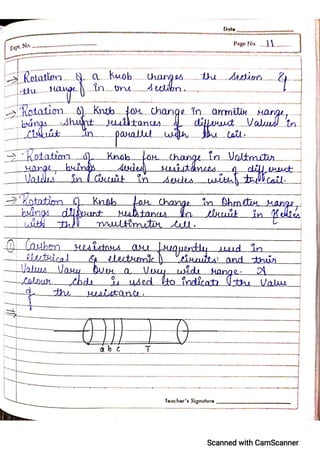 Date
Expt. No.
Page No 11
→ Rotation of a knob changes the section of
the range in one section.
→ Rotation of Knob for change in ammeter range,
brings shunt resistances of different Values in
circuit in parallel with the coil.
→ Rotation of Knob for change in Voltmeter
range, brings series resistances of different
Values in circuit in series with the coil.
→ Rotation of Knob for change in Ohmeter range,
brings different resistances in circuit in series
with the multimeter cell.
① Carbon resistors are frequently used in
electrical & electronic circuits and their
Values Vary over a Very wide range. A
colour code is used to indicate the Value
of the resistance.
⇒
a b c T
Teacher's Signature
Scanned with CamScanner